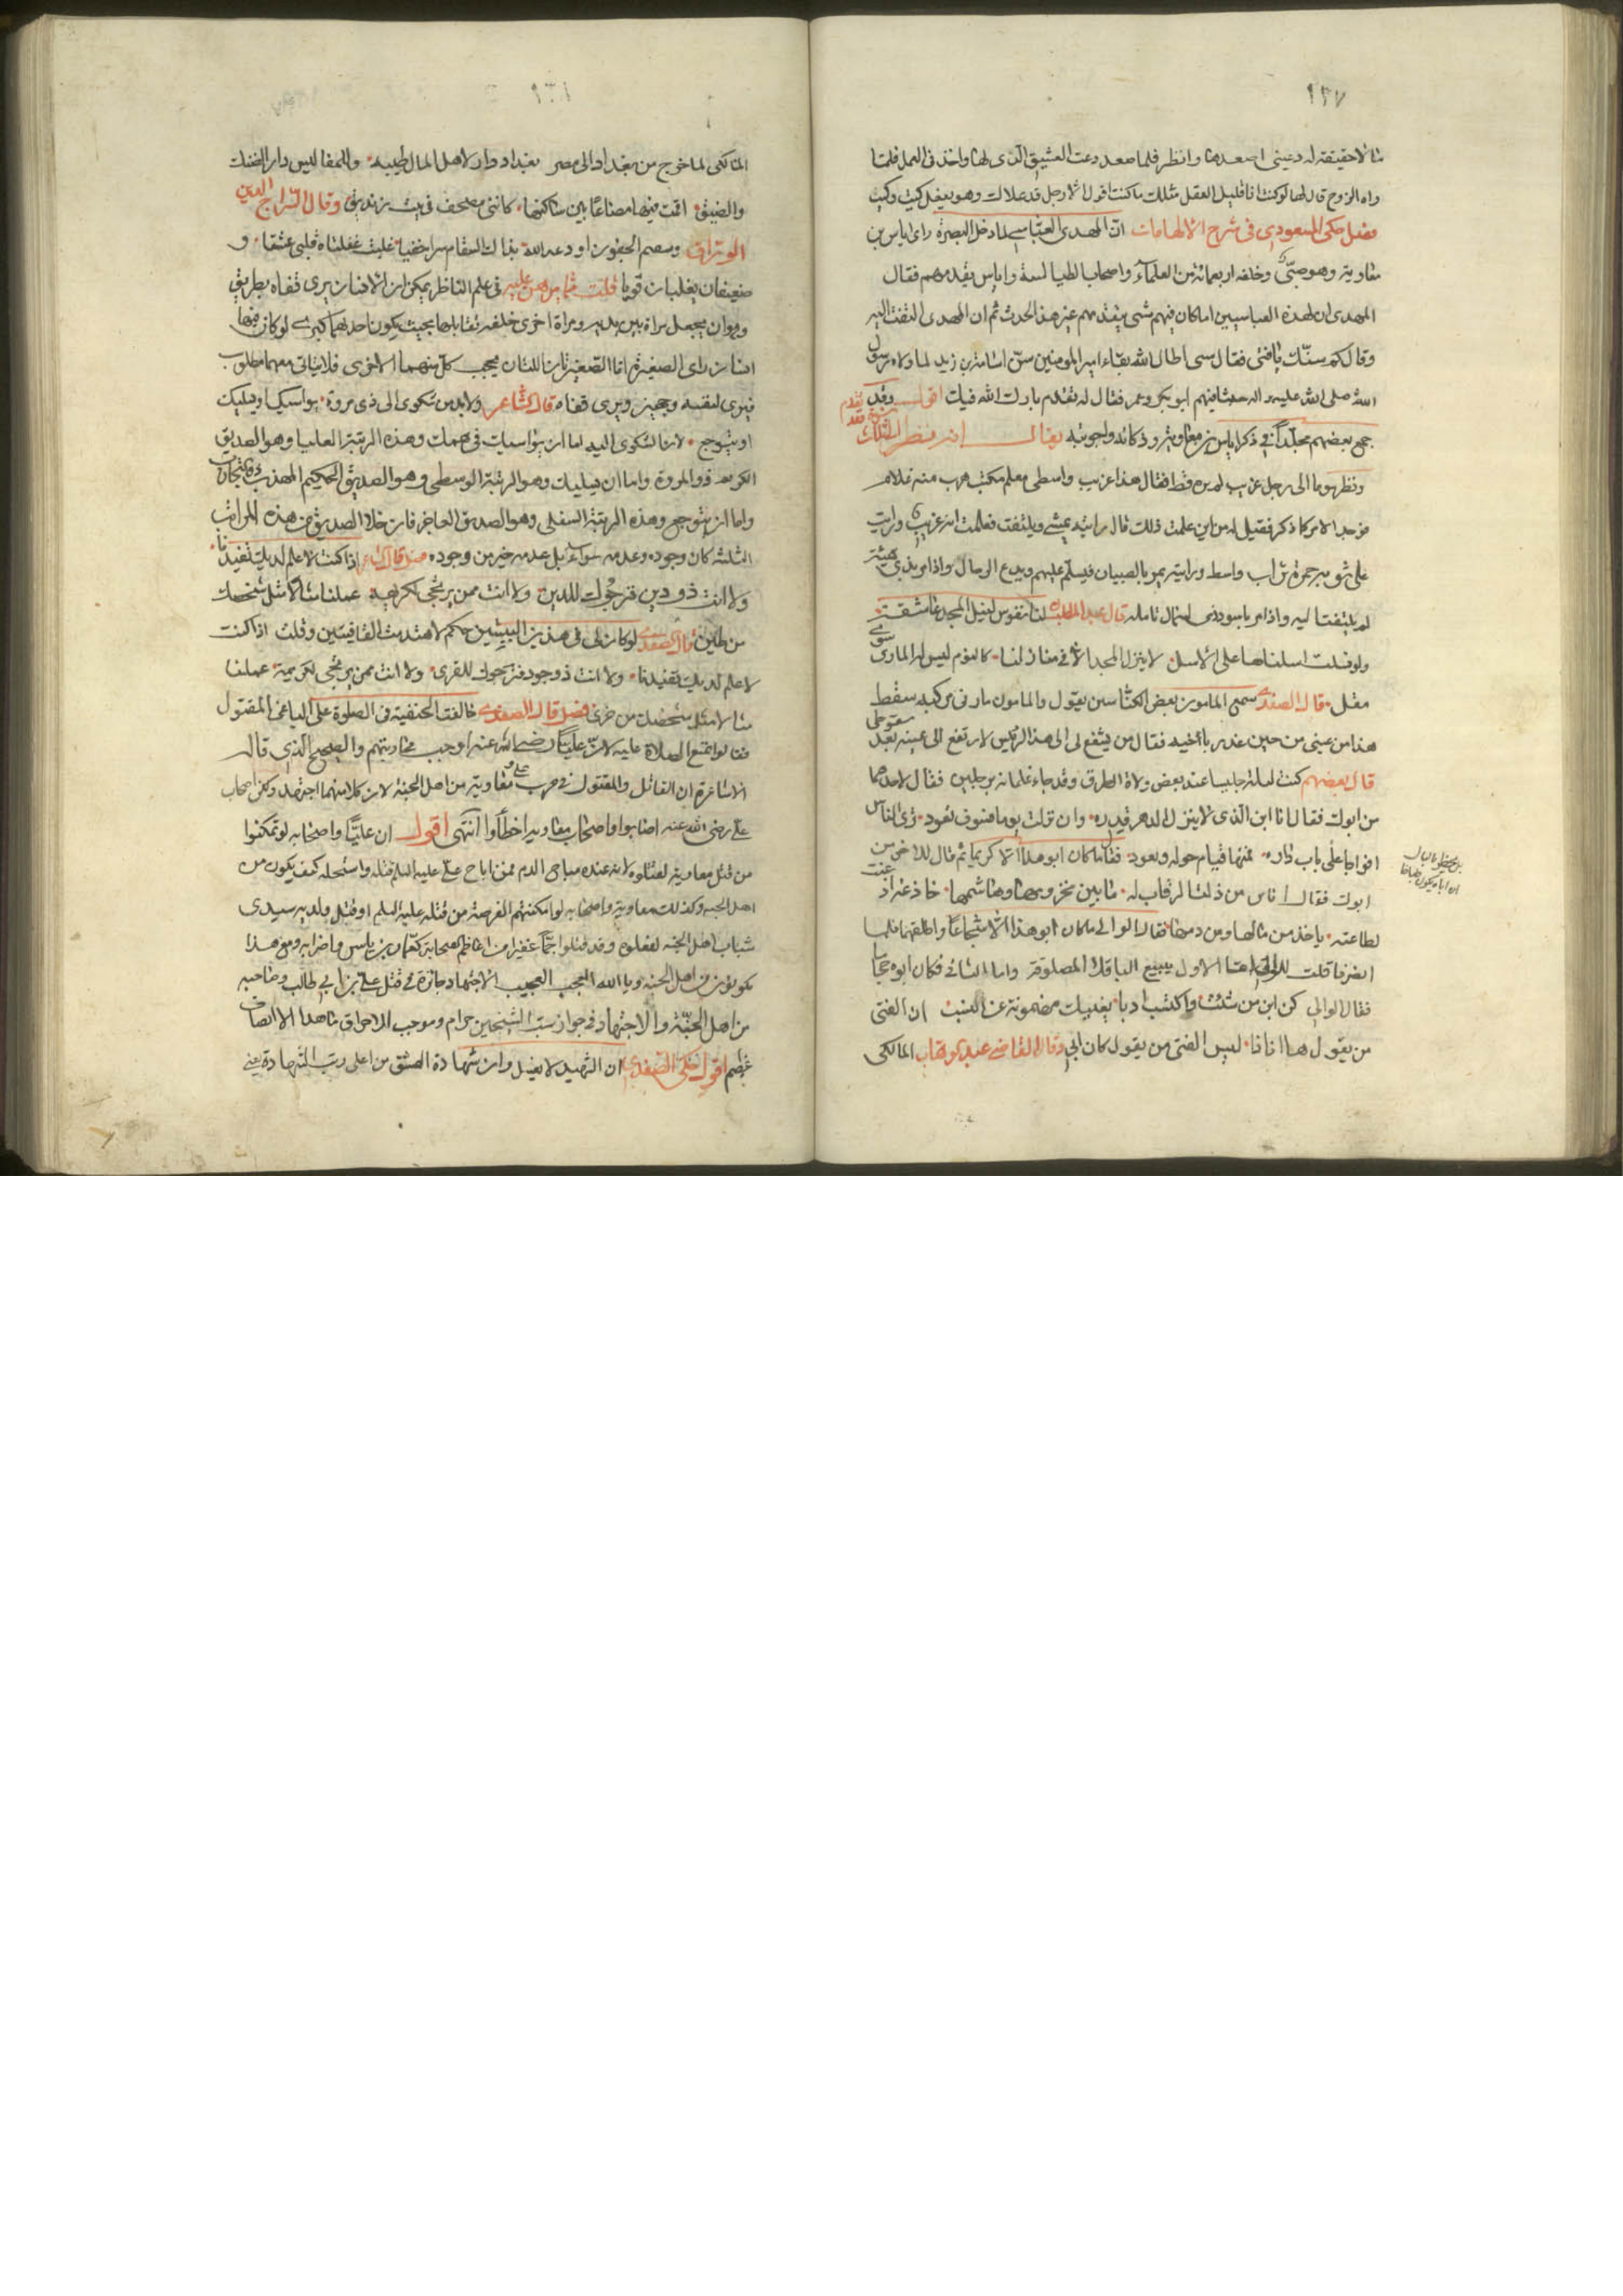 ١٣٧
مثالا حقيقة له دعينى اصعدها وانظر فلما صعد دعت العشيق الذى لها واخذ فى العمل فلما
راه الزوج قال لها لو كنت انا قليل العقل مثلك ما كنت اقول الا رجل قد علاك وهو يفعل كيت وكيت
فصل حكى المسعودى فى شرح المقامات ان المهدى العباسى لما دخل البصرة راى اياس بن
معاوية وهو صبى وخلفه اربعمائة من العلماء واصحاب الطيالسة واياس يقدمهم فقال
المهدى اف لهذه العباسيين اما كان فيهم شيخ يتقدمهم غير هذا الحدث ثم ان المهدى التفت اليه
وقال كم سنك يا فتى فقال سنى اطال الله بقاء امير المومنين سن اسامة بن زيد لما ولاه رسول
الله صلى الله عليه واله جيشا فيهم ابو بكر وعمر فقال له تقدم بارك الله فيك اقول وقد تقدم
جمع بعضهم مجلدا فى ذكر اياس بن معاوية وذكائه واجوبته يقال انه نظر
ونظر يوما الى رجل غريب لم يره قط فقال هذا غريب واسطى معلم مكتب هرب منه غلام
فوجد الامر كما ذكر فقيل له من اين علمت ذلك قال رايته يمشى ويلتفت فعلمت انه غريب ورايت
على ثوبه حمرة تراب واسط ورايته يمر بالصبيان فيسلم عليهم ويدع الرجال واذا مر بذى هيئة
لم يلتفت اليه واذا مر باسود دنى تامله قال عبد المطلب لنا نفوس لنيل المجد عاشقة
ولو تسلت اسلناها على الاسل لا ينزل المجد الا فى منازلنا كالنوم ليس له الماوى سوى
مقل قال الصفدى سمع المامون بعض الكناسين يقول والمامون مار فى موكبه سقط
هذا من عينى من حين غدر باخيه فقال من يشفع لى الى هذا الرئيس لارتفع الى عينه بعد سقوطى
قال بعضهم كنت ليلة جليسا عند بعض ولاة الطرق وقد جاء غلمانه برجلين فقال لاحدهما
من ابوك فقال انا ابن الذى لا ينزل الدهر قدره وان نزلت يوما فسوف تعود ترى الناس
افواجا على باب داره فمنها قيام حوله وقعود فقال ما كان ابو هذا الا كريما ثم قال للاخر من
ابوك فقال انا من ذلت الرقاب له ما بين مخزومها وهاشمها خاذعة اذعنت
لطاعته ياخذ من مالها ومن دمها فقال الوالى ما كان ابو هذا الا شجاعا واطلقهما فلما
انصرفا قلت للوالى اما الاول يبيع الباقلا المصلوقة واما الثانى فكان ابوه حجاما
فقال الوالى كن ابن من شئت واكتسب ادبا يغنيك مضمونه عن النسب ان الفتى
من يقول ها انا ذا ليس الفتى من يقول كان ابى وقال القاضى عبد الوهاب المالكى
١٣٨
المالكى لما خرج من بغداد الى مصر بغداد دار لاهل المال طيبة وللمفاليس دار الضنك
والضيق اقمت فيها مضاعا بين ساكنها كاننى مصحف فى بيت زنديق وقال السراج الدين
الوراق وسقيم الجفون اودعه الله بذاك السقام سرا خفيا غلبت مقلتاه قلبى عشقا و
ضعيفان يغلبان قويا قلت مما برهن عليه فى علم المناظر يمكن ان الانسان يرى قفاه بطريق
وهو ان يجعل مراة بين يديه ومراة اخرى خلفه تقابلها بحيث يكون احدهما اكبر لو كان فيها
انسان راى الصغيرة اما الصغيرتان اللتان يحجب كل منهما الاخرى فلا يتاتى معهما مطلوب
فيرى نفسه وجهه ويرى قفاه قال الشاعر ولا بد من شكوى الى ذى مروة يواسيك او يسليك
او يتوجع لان الشكوى اليه اما ان يواسيك فى همك وهذه الرتبة العليا وهو الصديق
الكريم ذو المروة واما ان يسليك وهو الرتبة الوسطى وهو الصديق الحكيم المهذب ذو التجارب
واما ان يتوجع وهذه المرتبة السفلى وهو الصديق العاجز فان خلا الصديق من هذه المراتب
الثلثة كان وجوده وعدمه سواء بل عدمه خير من وجوده فصل قال الشاعر اذا كنت لا علم لديك تفيدنا
ولا انت ذو دين فنرجوك للدين ولا انت ممن يرتجى لكريهة عملنا مثالا مثل شخصك
من طين قال الصفدى لو كان لى فى هذين البيتين حكم لاهتدمت القافيتين وقلت اذا كنت
لا علم لديك تفيدنا ولا انت ذو جود فنرجوك للقرى ولا انت ممن يرتجى لكريمة عملنا
مثالا مثل شخصك من خرى فصل قال الصفدى خالفت الحنفية فى الصلوة على الباغى المقتول
فقالوا تمتنع الصلاة عليه لان عليا رضى الله عنه اوجب محاربتهم والصحيح الذى قاله
الاشاعرة ان القاتل والمقتول فى حرب على ومعاوية من اهل الجنة لان كلا منهما اجتهد ولكن اصحاب
على رضى الله عنه اصابوا واصحاب معاوية اخطأوا انتهى اقول ان عليا واصحابه لو تمكنوا
من قتل معاوية لقتلوه لانه عنده مباحى الدم فمن اباح على عليه السلم قتله واستحله كيف يكون من
اهل الجنة وكذلك معاوية واصحابه لو امكنتهم الفرصة من قتله عليه السلم او قتل ولديه سيدى
شباب اهل الجنة لفعلوه وقد قتلوا جما غفيرا من اعاظم الصحابة كعمار بن ياسر واضرابه ومع هذا
يكونون من اهل الجنة ويا الله العجب العجيب الاجتهاد جائزة فى قتل على بن ابى طالب وصاحبه
من اهل الجنة والاجتهاد فى جواز سب الشيخين حرام وموجب للاحراق ما هذا الا انصاف
عظيم اقول حكى الصفدى ان الشهيد لا يغسل وان شهادة العشق من اعلى رتب الشهادة يعنى